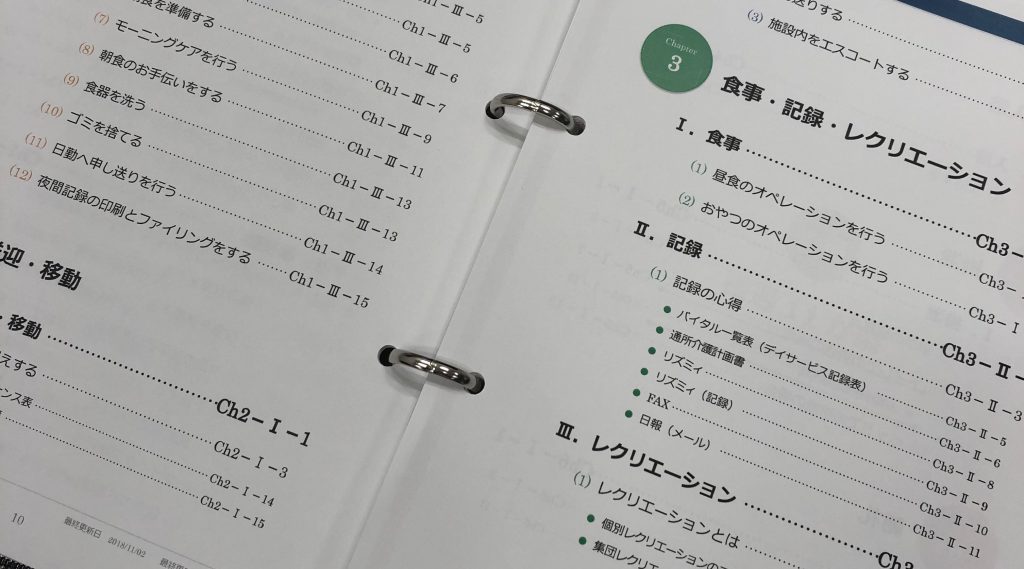 Ch1－Ⅲ－5
食を準備する Ch1－Ⅲ－5
(7) モーニングケアを行う Ch1－Ⅲ－6
(8) 朝食のお手伝いをする Ch1－Ⅲ－7
(9) 食器を洗う Ch1－Ⅲ－9
(10) ゴミを捨てる Ch1－Ⅲ－11
(11) 日勤へ申し送りを行う Ch1－Ⅲ－13
(12) 夜間記録の印刷とファイリングをする Ch1－Ⅲ－13
Ch1－Ⅲ－14
Ch1－Ⅲ－15
迎・移動
移動 Ch2－Ⅰ－1
えする Ch2－Ⅰ－3
ンス表 Ch2－Ⅰ－14
Ch2－Ⅰ－15
10
最終更新日 2018/11/02
送りする
(3) 施設内をエスコートする
Chapter
3
食事・記録・レクリエーション
Ⅰ. 食事 Ch3－
(1) 昼食のオペレーションを行う Ch3－
(2) おやつのオペレーションを行う Ch3－Ⅰ
Ⅱ. 記録 Ch3－Ⅱ－
(1) 記録の心得 Ch3－Ⅱ－3
● バイタル一覧表（デイサービス記録表） Ch3－Ⅱ－5
● 通所介護計画書 Ch3－Ⅱ－6
● リズミィ Ch3－Ⅱ－8
● リズミィ（記録） Ch3－Ⅱ－9
● FAX Ch3－Ⅱ－10
● 日報（メール） Ch3－Ⅱ－11
Ⅲ. レクリエーション Ch3
(1) レクリエーションとは
● 個別レクリエーションの
● 集団レクリエ